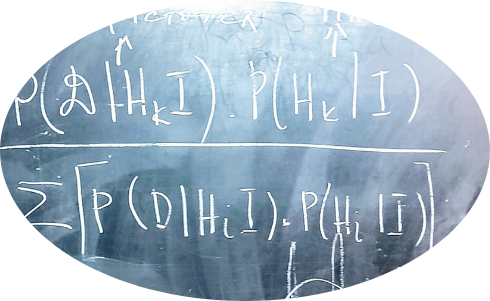 P(D|HₖI).P(Hₖ|I)
Σ[P(D|HᵢI).P(Hᵢ|I)]